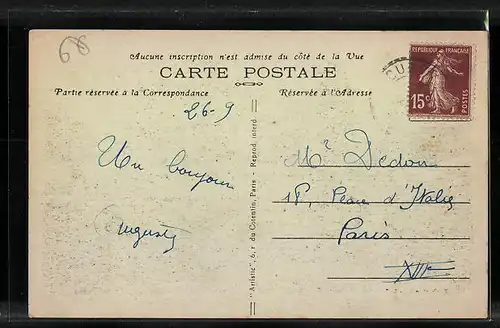 68
Aucune inscription n'est admise du côté de la Vue
CARTE POSTALE
Partie réservée à la Correspondance
Réservée à l'Adresse
RÉPUBLIQUE FRANÇAISE
15c
POSTES
26-9
Un bonjour
"Artistic", 6, r. du Cotentin, Paris - Reprod. interd.
Mr Dedon
18, Place d'Italie
Paris
XIII